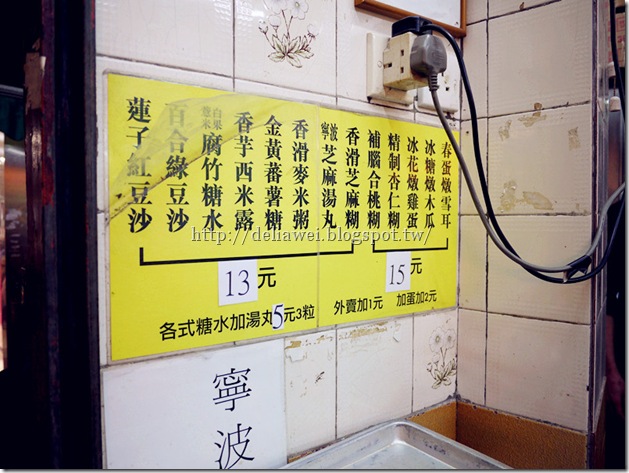 春蛋燉雪耳
冰糖燉木瓜
冰花燉雞蛋
精制杏仁糊
補腦合桃糊
香滑芝麻糊
寧波芝麻湯丸
香滑麥米粥
金黃蕃薯糖
香芋西米露
白果薏米腐竹糖水
百合綠豆沙
蓮子紅豆沙
http://deliawei.blogspot.tw/
13元
15元
各式糖水加湯丸5元3粒
外賣加1元 加蛋加2元
寧波